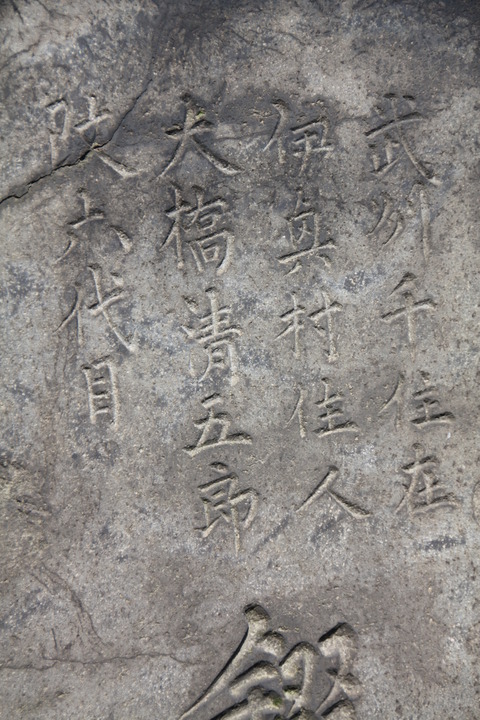 武州千住在
伊興村住人
大橋清五郎
六代目